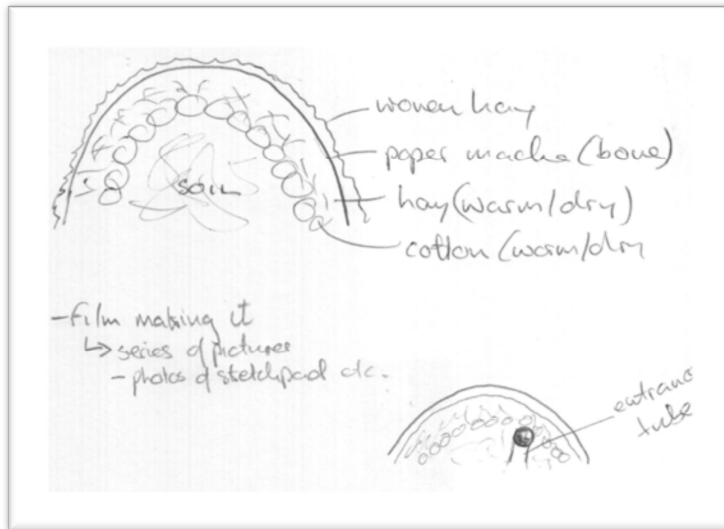 woven hay
paper mache (bone)
hay (warm/dry)
cotton (warm/dry
SOIL
- Film making it
↳ series of pictures
- photos of sketchpad etc.
entrance
tube